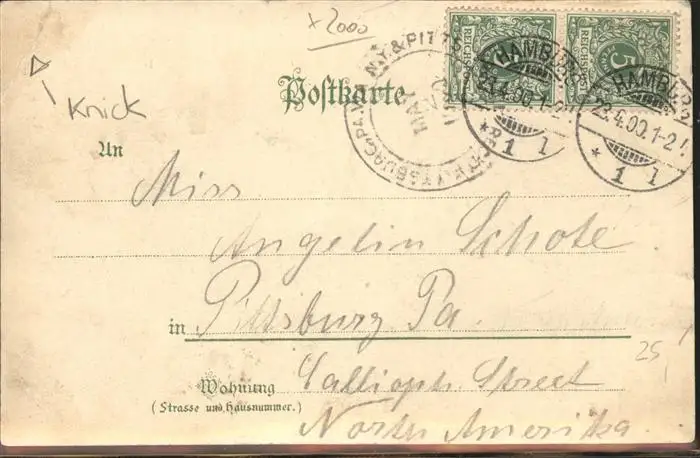 x 2000
Knick
Postkarte
N.Y. & PITTS
MAY
REICHSPOST 5
REICHSPOST 5
HAMBURG
23.4.00.1-2
* 1 1
HAMBURG
23.4.00.1-2
* 1 1
An
Miss
Angelin Schote
in Pittsburg Pa.
25,
Wohnung Calliope Street
(Strasse und Hausnummer.)
North Amerika.